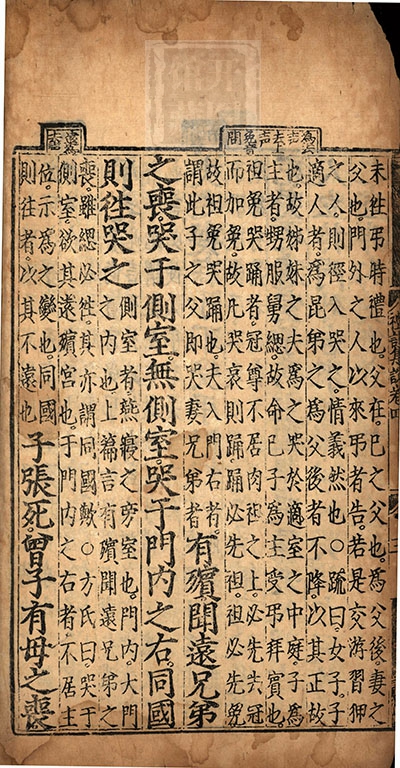 禮記集說卷四
三
未往弔時禮也。父在。已之父也。為父後。妻之
父也。門外之人以來弔者告。若是交游習狎
之人。則徑入哭之。情義然也。○疏曰。女子子
適人者。為昆弟之為父後者不降。以其正故
也。故姊妹之夫為之哭於適室之中庭。子為
主者。甥服舅緦。故命己子為主受弔拜賓也。
袒免哭踊者。冠尊不居肉袒之上。必先去冠
而加免。故凡哭哀則踊。踊必先袒。袒必先免
故袒免哭踊也。夫入門右者。
謂此子之父即哭妻兄弟者
有殯聞遠兄弟
之喪。哭于側室。無側室。哭于門內之右。同國
則往哭之
側室者。燕寢之旁室也。門內。大門
之內也。上篇言有殯聞遠兄弟之
喪。雖緦必往。其亦謂同國歟。○方氏曰。哭于
側室。欲其遠殯宮也。于門內之右者。不居主
位。示為之變也。同國
則往者。以其不遠也
子張死。曾子有母之喪
免音
問